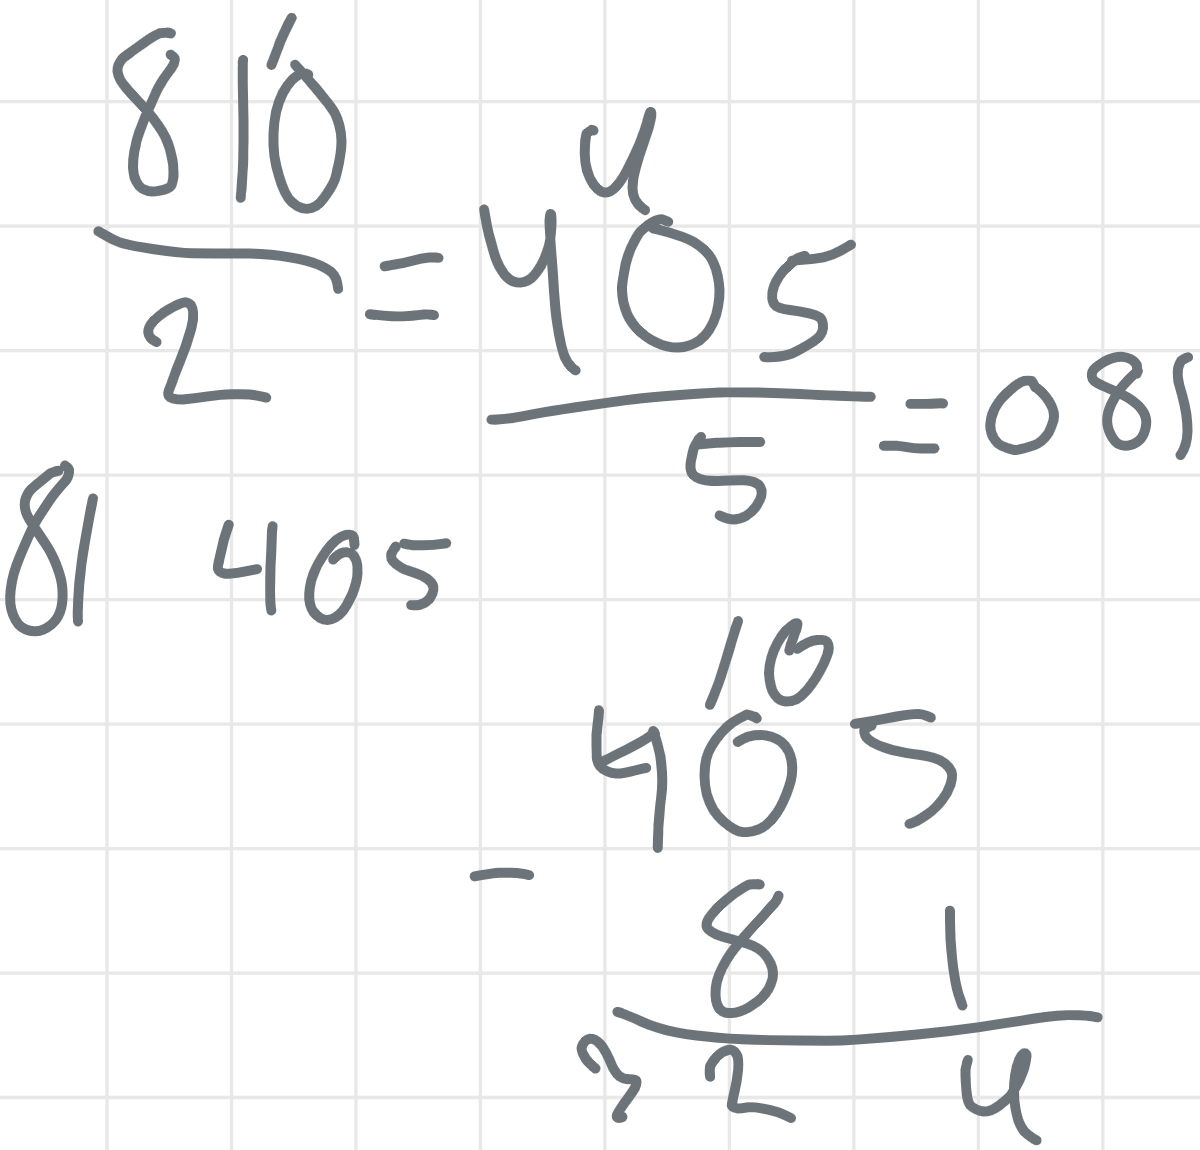 810
2
= 405
5
= 081
81 405
10
405
-
8 1
3 2 4